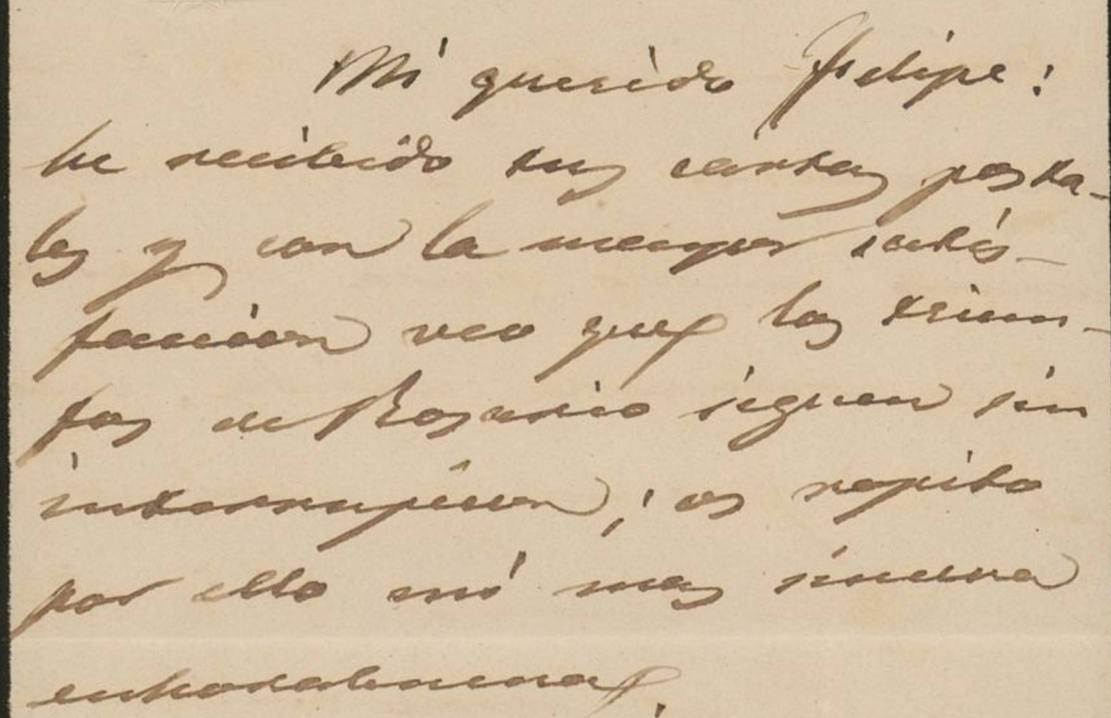 Mi querido Felipe:
he recibido tus cartas posta-
les y con la mayor satis-
facción veo que los triun-
fos de Rosario siguen sin
interrupcion; os repito
por ello mi mas sincera
enhorabuena.